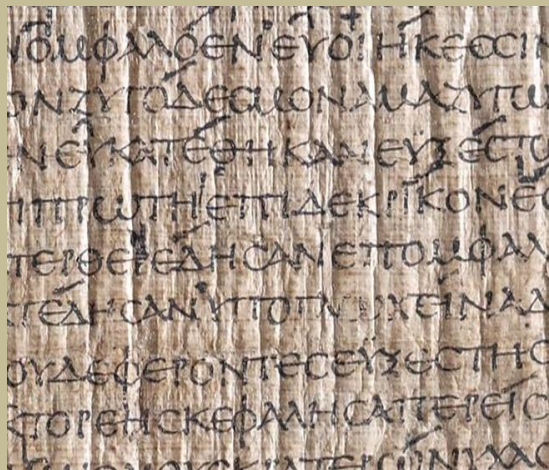 ΟΜΦΑΛΟΕΝΕΥΟΙΗΚΕϹϹΙΝ
ΟΝΖΥΓΟΔΕϹΜΟΝΑΜΑΖΥΓⲰ
ΝΕΥΚΑΤΕΘΗΚΑΝΕΥΞΕϹΤⲰ
ΙΠΡⲰΤΗΕΠΙΔΕΚΡΙΚΟΝΕϹ
ΤΕΡΘΕΝΕΔΗϹΑΝΕΠΟΜΦΑΛ
ΤΕΔΗϹΑΝΥΠΟΓΛⲰΧΕΙΝΑΔ
ΟΥΔΕΦΕΡΟΝΤΕϹΕΥΞΕϹΤΗϹ
ΚΤΟΡΕΗϹΚΕΦΑΛΗϹΑΠΕΡΕΙϹ